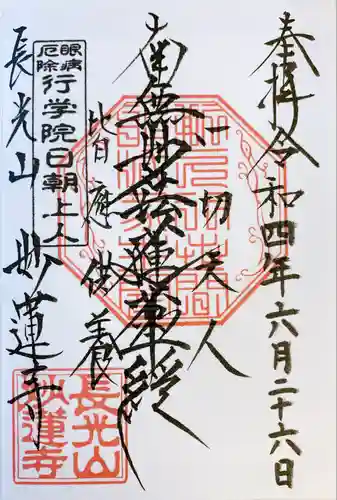 奉拝 令和四年六月二十六日
一切天人
南無妙法蓮華経
皆応供養
眼病
厄除
行学院日朝上人
長光山 妙蓮寺
長光山
妙蓮寺